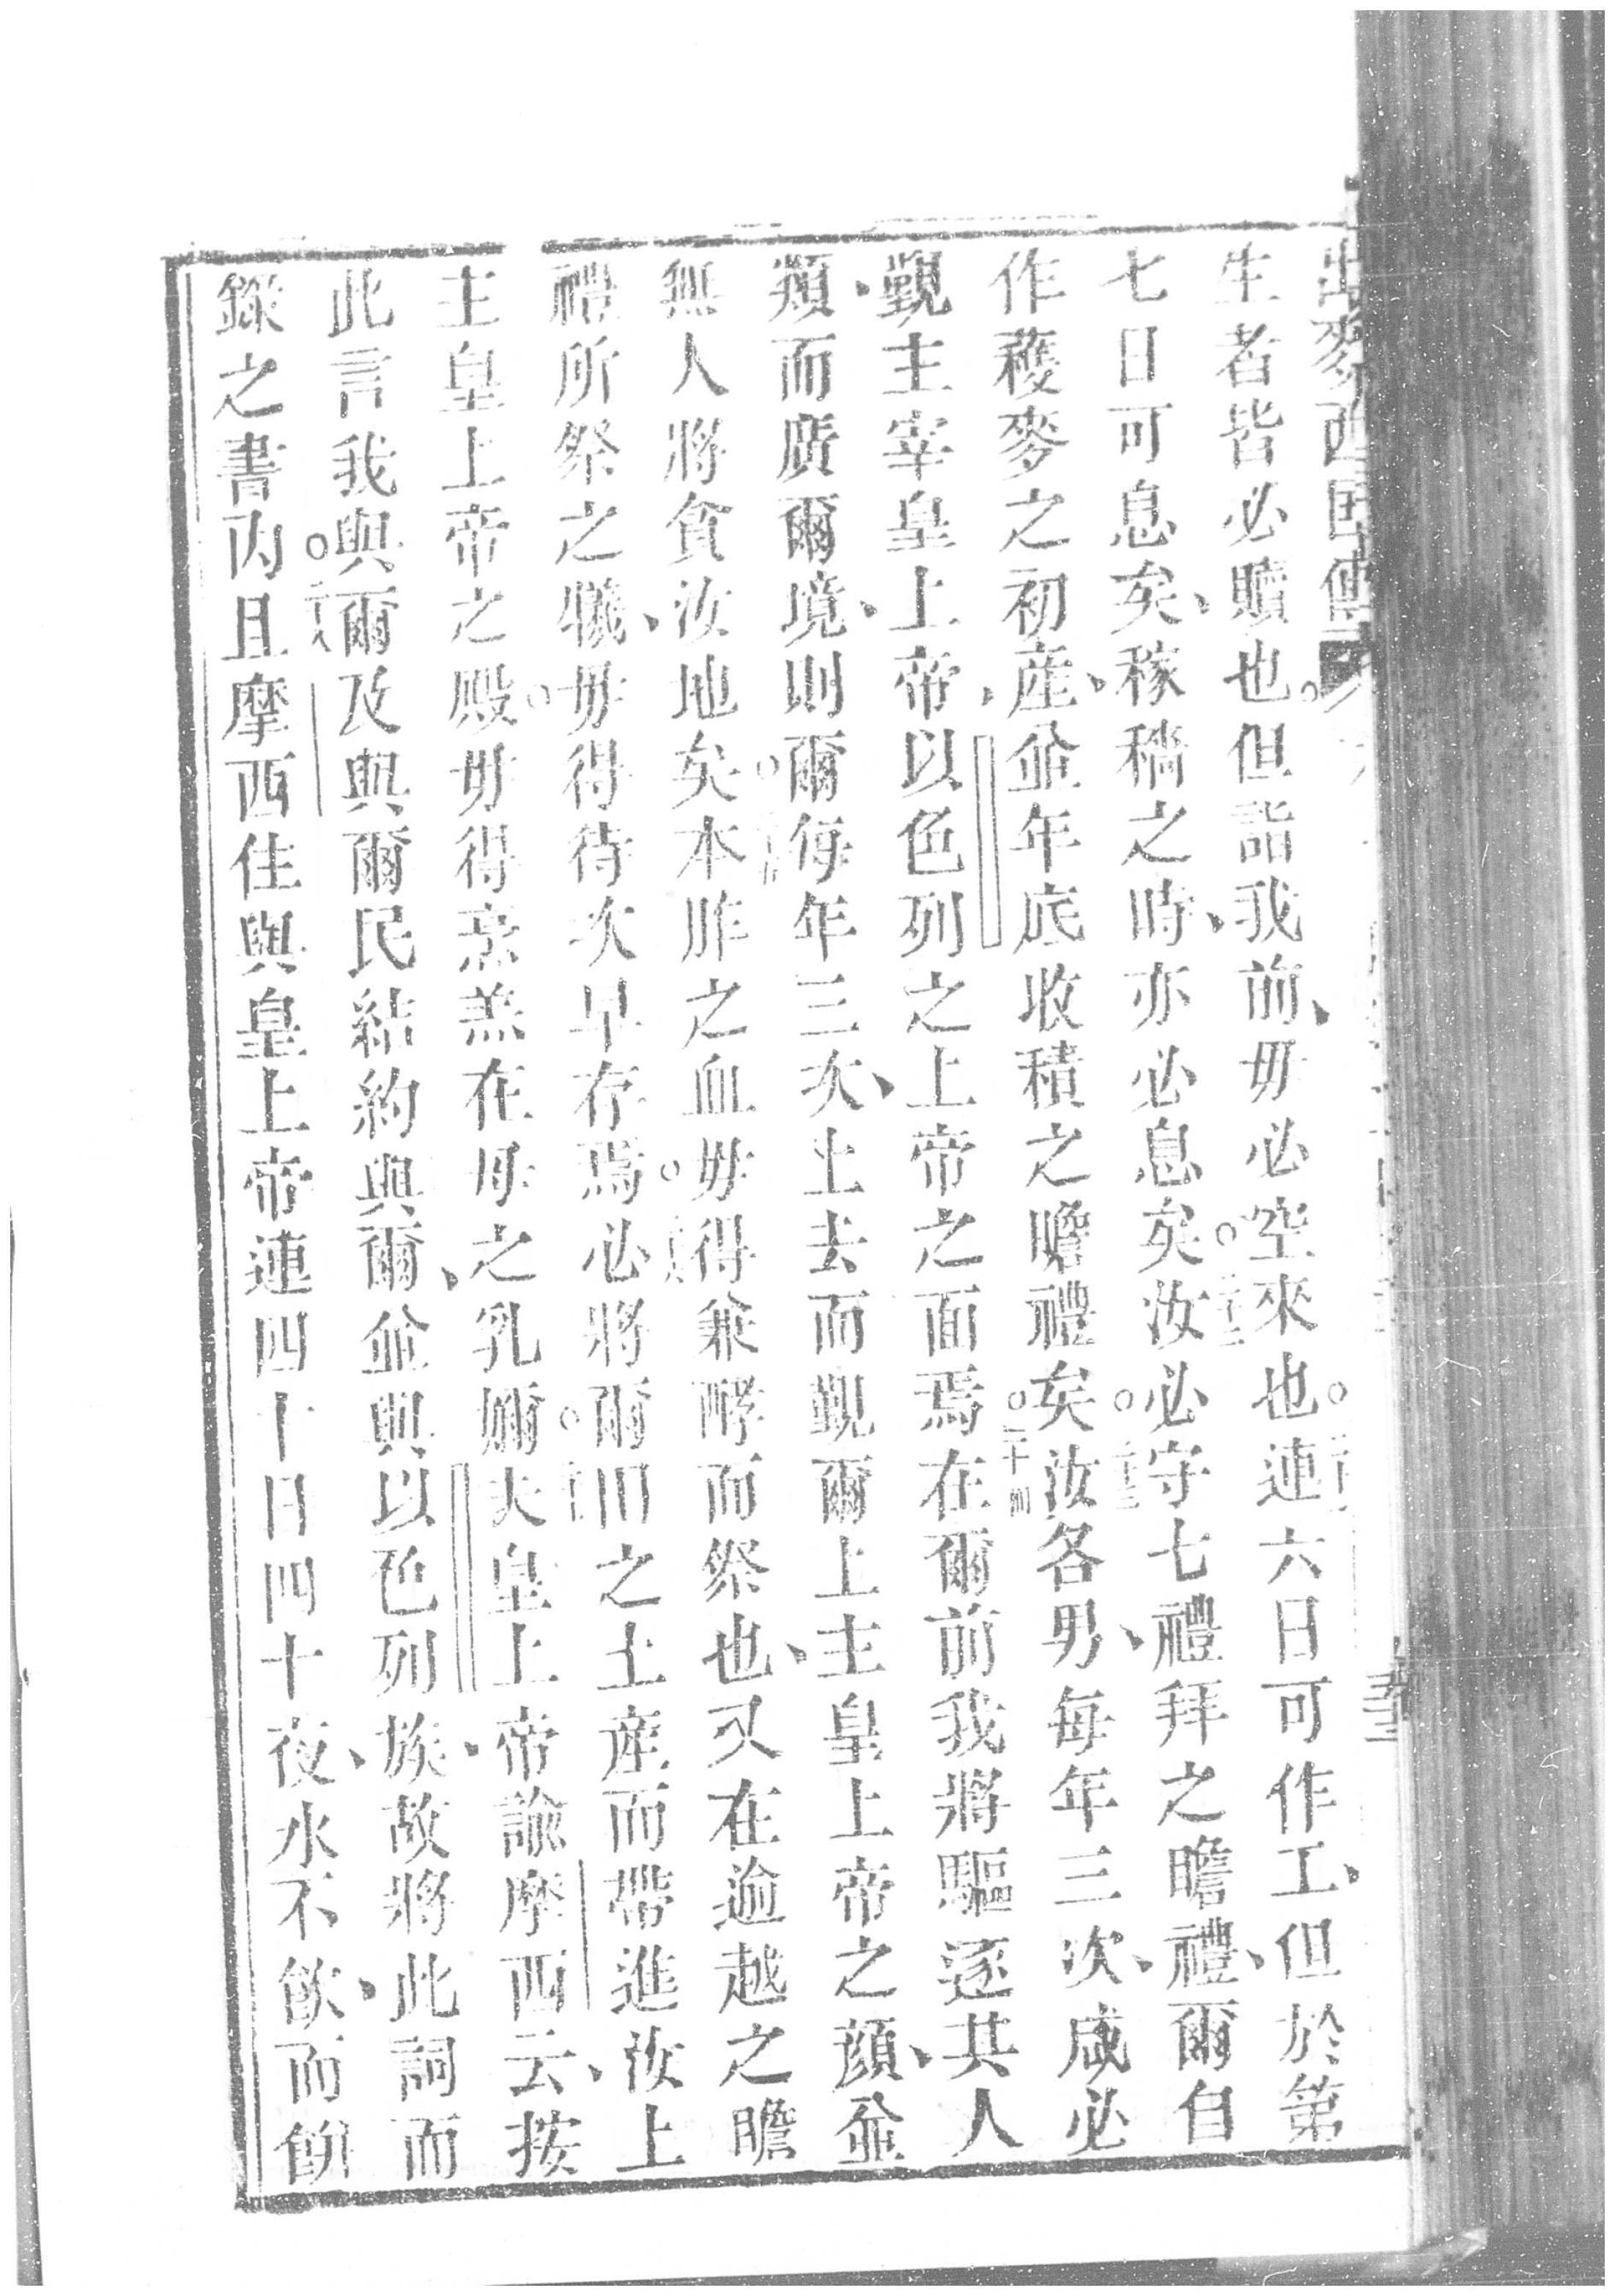 出麥西國傳
生者皆必贖也。但詣我前、毋必空來也。連六日可作工、但於第
七日可息矣、稼穡之時、亦必息矣。汝必守七禮拜之瞻禮、爾自
作穫麥之初產、並年底收積之瞻禮矣。汝各男、每年三次、咸必
覲主宰皇上帝、以色列之上帝之面焉。二十四在爾前我將驅逐其人
類、而廣爾境、則爾每年三次、上去而覲爾上主皇上帝之顏、並
無人將貪汝地矣。本胙之血、毋得兼酵而祭也、又在逾越之瞻
禮所祭之犧、毋得待次早存焉。必將爾田之土產而帶進汝上
主皇上帝之殿。毋得烹羔在母之乳爾。夫皇上帝諭摩西云、按
此言我與爾及與爾民結約、與爾並與以色列族、故將此詞而
錄之書內。且摩西住與皇上帝連四十日四十夜、水不飲、而餅